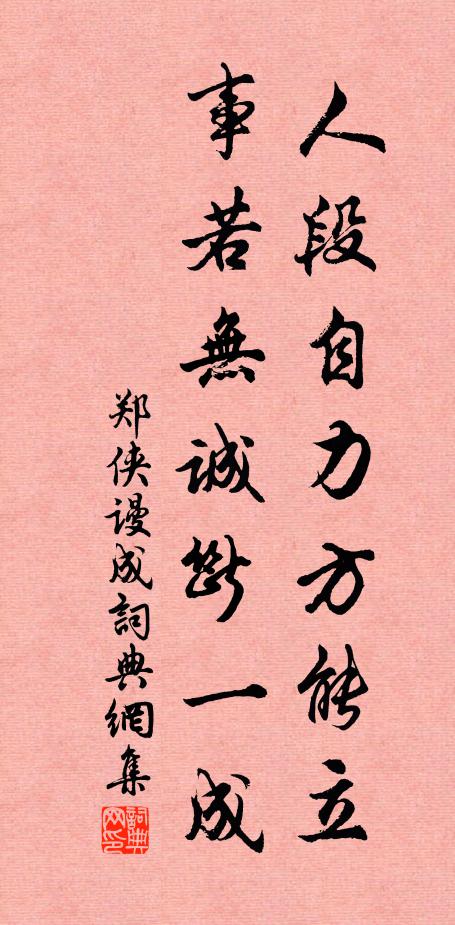 人段自力方能立
事若無誠斷一成
郑侠谩成詞典網集
詞典
网印